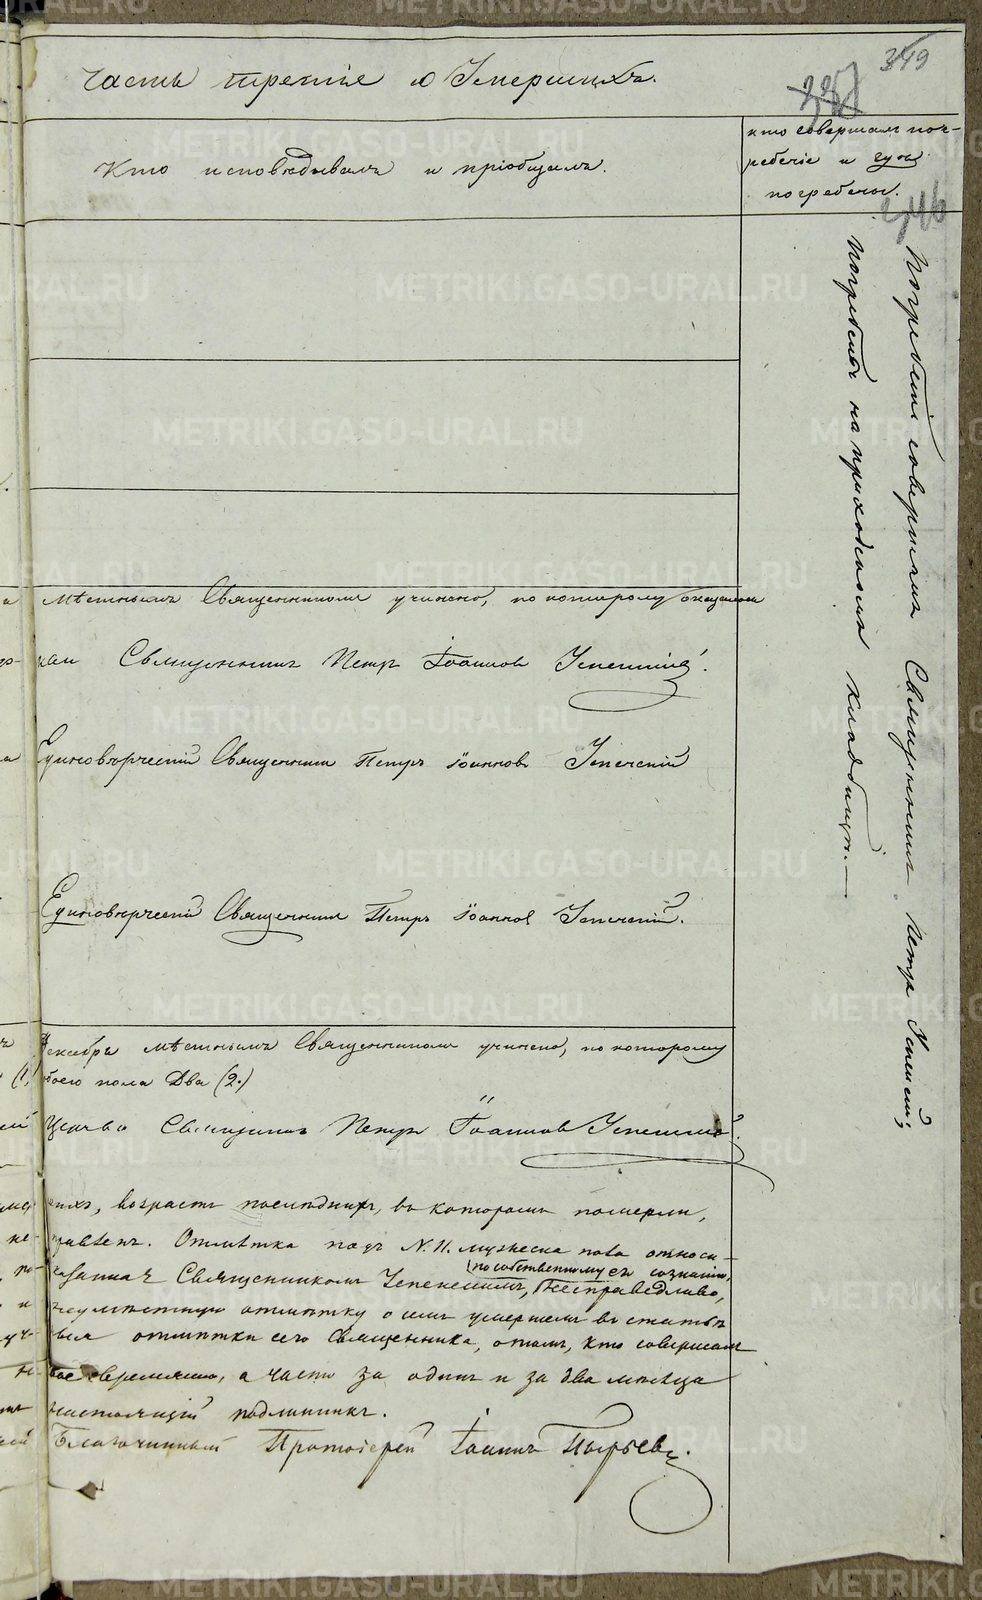 349
Часть третія о Умершихъ.
Кто исповѣдывалъ и пріобщалъ.
кто совершалъ пог-
ребеніе и гдѣ
погребены.
Погребеніе совершалъ Священникъ Петръ Успенскій;
погребены на приходскомъ кладбищѣ.
мѣстнымъ Священникомъ учинено, по которому оказалось
Священникъ Петръ Іоанновъ Успенскій.
Единовѣрческій Священникъ Петръ Іоанновъ Успенскій
Единовѣрческій Священникъ Петръ Іоанновъ Успенскій.
Декабрь мѣстнымъ Священникомъ учинено, по которому
обоего пола Два (2.)
Священникъ Петръ Іоанновъ Успенскій.
возрастъ послѣднихъ, въ которомъ померли,
Отмѣтка подъ N. 11. мужеска пола относи-
по собственному его сознанію,
Священникомъ Успенскимъ, несправедливо,
отмѣтку о семъ умершемъ въ статьѣ
отмѣтки сего Священника, о томъ, кто совершалъ
временно, а часто за одинъ и за два мѣсяца
настоящій подлинникъ.
Благочинный Протоіерей Іоаннъ Пырьевъ.
METRIKI.GASO-URAL.RU